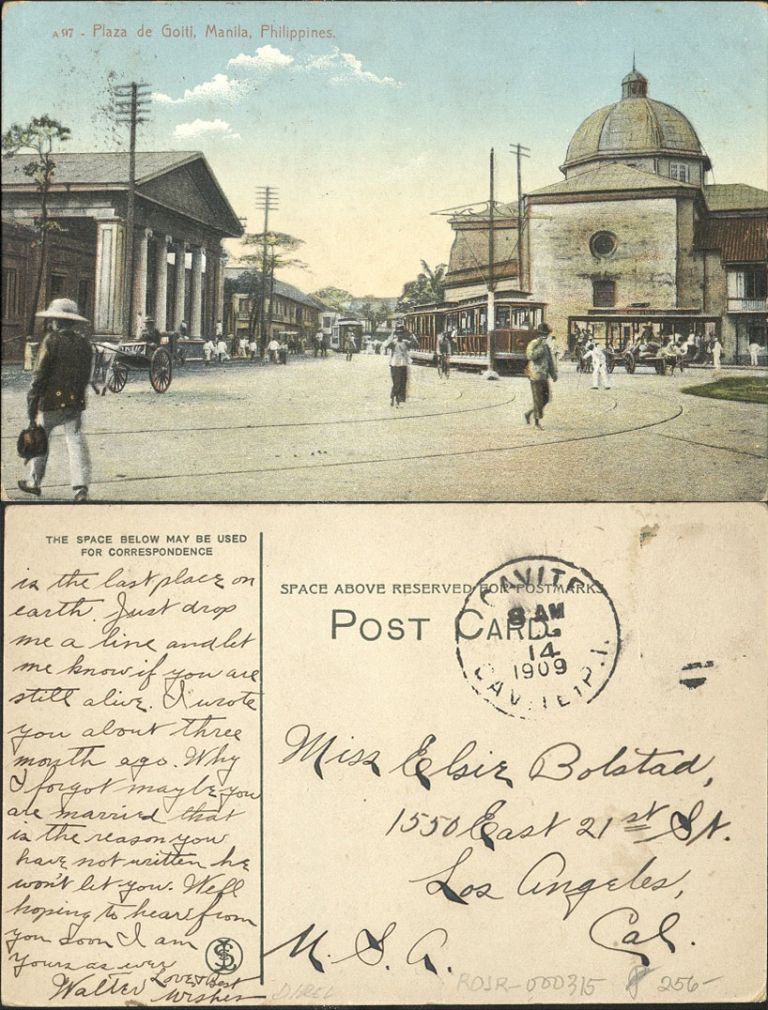 A 97 - Plaza de Goiti, Manila, Philippines.
THE SPACE BELOW MAY BE USED
FOR CORRESPONDENCE
is the last place on
earth. Just drop
me a line and let
me know if you are
still alive. I wrote
you about three
month ago. Why
I forgot maybe you
are married that
is the reason you
have not written he
won't let you. Well
hoping to hear from
you soon I am
Yours as ever
Walter Love & Best
Wishes
SPACE ABOVE RESERVED FOR POSTMARKS
POST CARD.
CAVITE
8 AM
14
1909
CAVITE, P.I.
Miss Elsie Bolstad,
1550 East 21st St.
Los Angeles,
Cal.
U. S. A.
ROJR-000315
256-